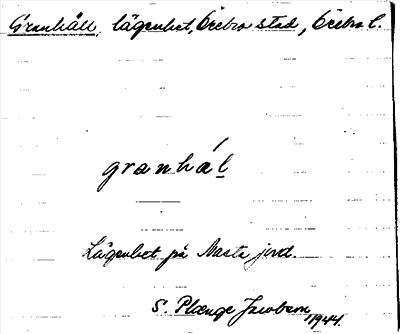 Granhäll, lägenhet, Örebro stad, Örebro l.
granhál
Lägenhet på Nasta jord.
S. Plænge Jacobson 1944.